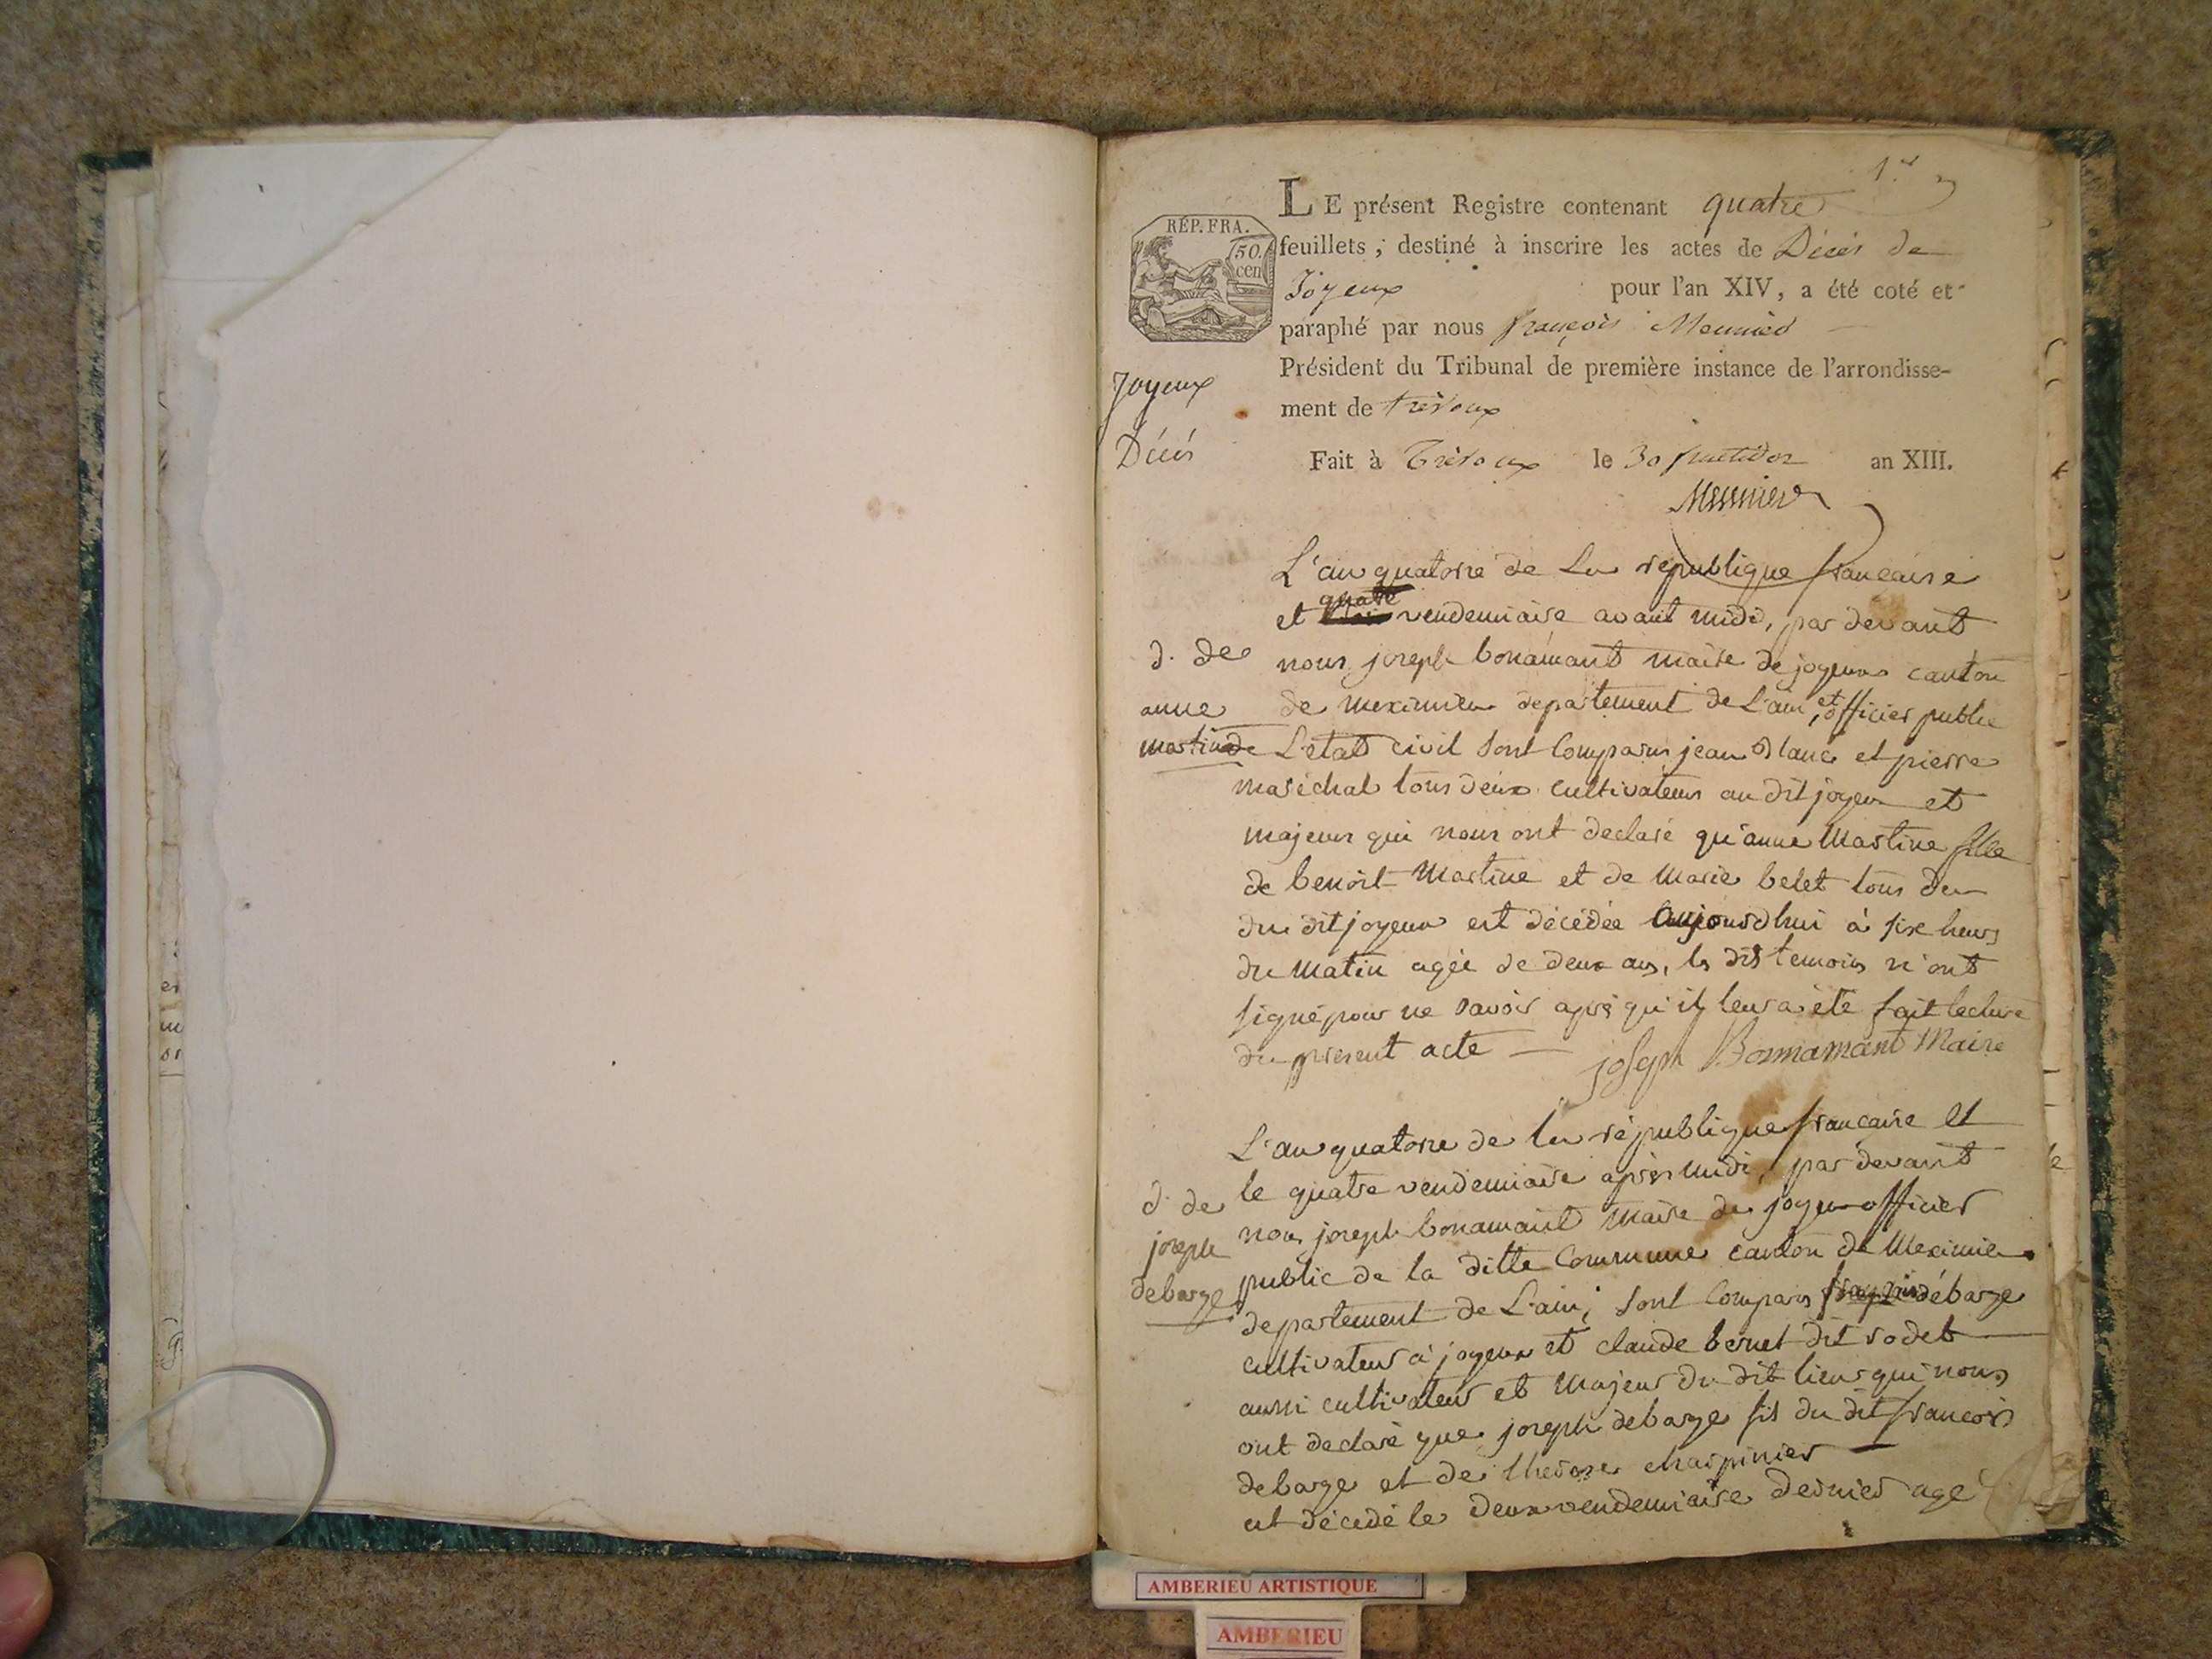 1.er
RÉP. FRA.
50.
cen
LE présent Registre contenant quatre
feuillets, destiné à inscrire les actes de Décès de
Joyeux pour l'an XIV, a été coté et
paraphé par nous françois Meunier
Président du Tribunal de première instance de l'arrondisse-
ment de trévoux
Joyeux
Décès
Fait à Trévoux le 30 fructidor an XIII.
Meunier
L'an quatorze de La republique francaise
et quatre vendemiaire avant midi, par devant
nous joseph bonamant maire de joyeux canton
de meximieu departement de L'ain et officier public
de L'état civil sont Comparus jean Blanc et pierre
maréchal tous deux cultivateurs au dit joyeux et
majeurs qui nous ont declaré qu'anne Martine fille
de benoit Martine et de Marie belet tous deu
du dit joyeux est décédée aujourdhui à six heures
du matin agée de deux ans, les dits temoins n'ont
signé pour ne savoir après qu'il leur a été fait lecture
du present acte joseph Bonnamant Maire
d. de
anne
martine
L'an quatorze de la république francaise et
le quatre vendemiaire après midi, par devant
nous joseph bonamant maire de joyeux officier
public de la ditte Commune canton de Meximieu
departement de L'ain; sont Comparus françois débarge
cultivateur à joyeux et claude bernet dit rodet
aussi cultivateur et majeur du dit lieu qui nous
ont declaré que joseph debarge fils du dit francois
debarge et de therese charpinier
est décédé le deux vendemiaire dernier agé
d. de
joseph
debarge
er
AMBERIEU ARTISTIQUE
AMBERIEU